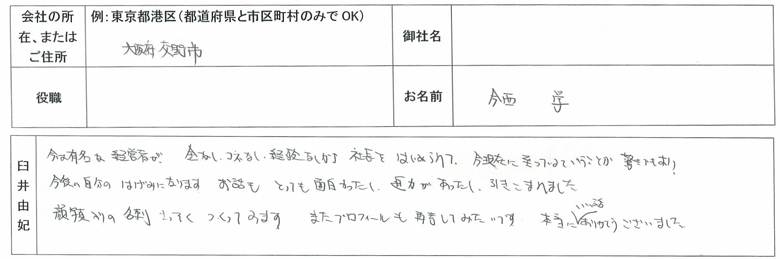 会社の所在、またはご住所
例：東京都港区（都道府県と市区町村のみでOK）
大阪府交野市
御社名
役職
お名前
今西 学
臼井由妃
今は有名な経営者が 金なし、コネなし、経験なしから 社長を はじめられて、今現在に至っているということが 驚きでもあり！
今後の自分の はげみになります お話も とっても面白かったし、迫力があったし、引きこまれました
顔入りの名刺 さっそく つくってみます またプロフィールも再考してみたいです 本当にいい話ありがとうございました